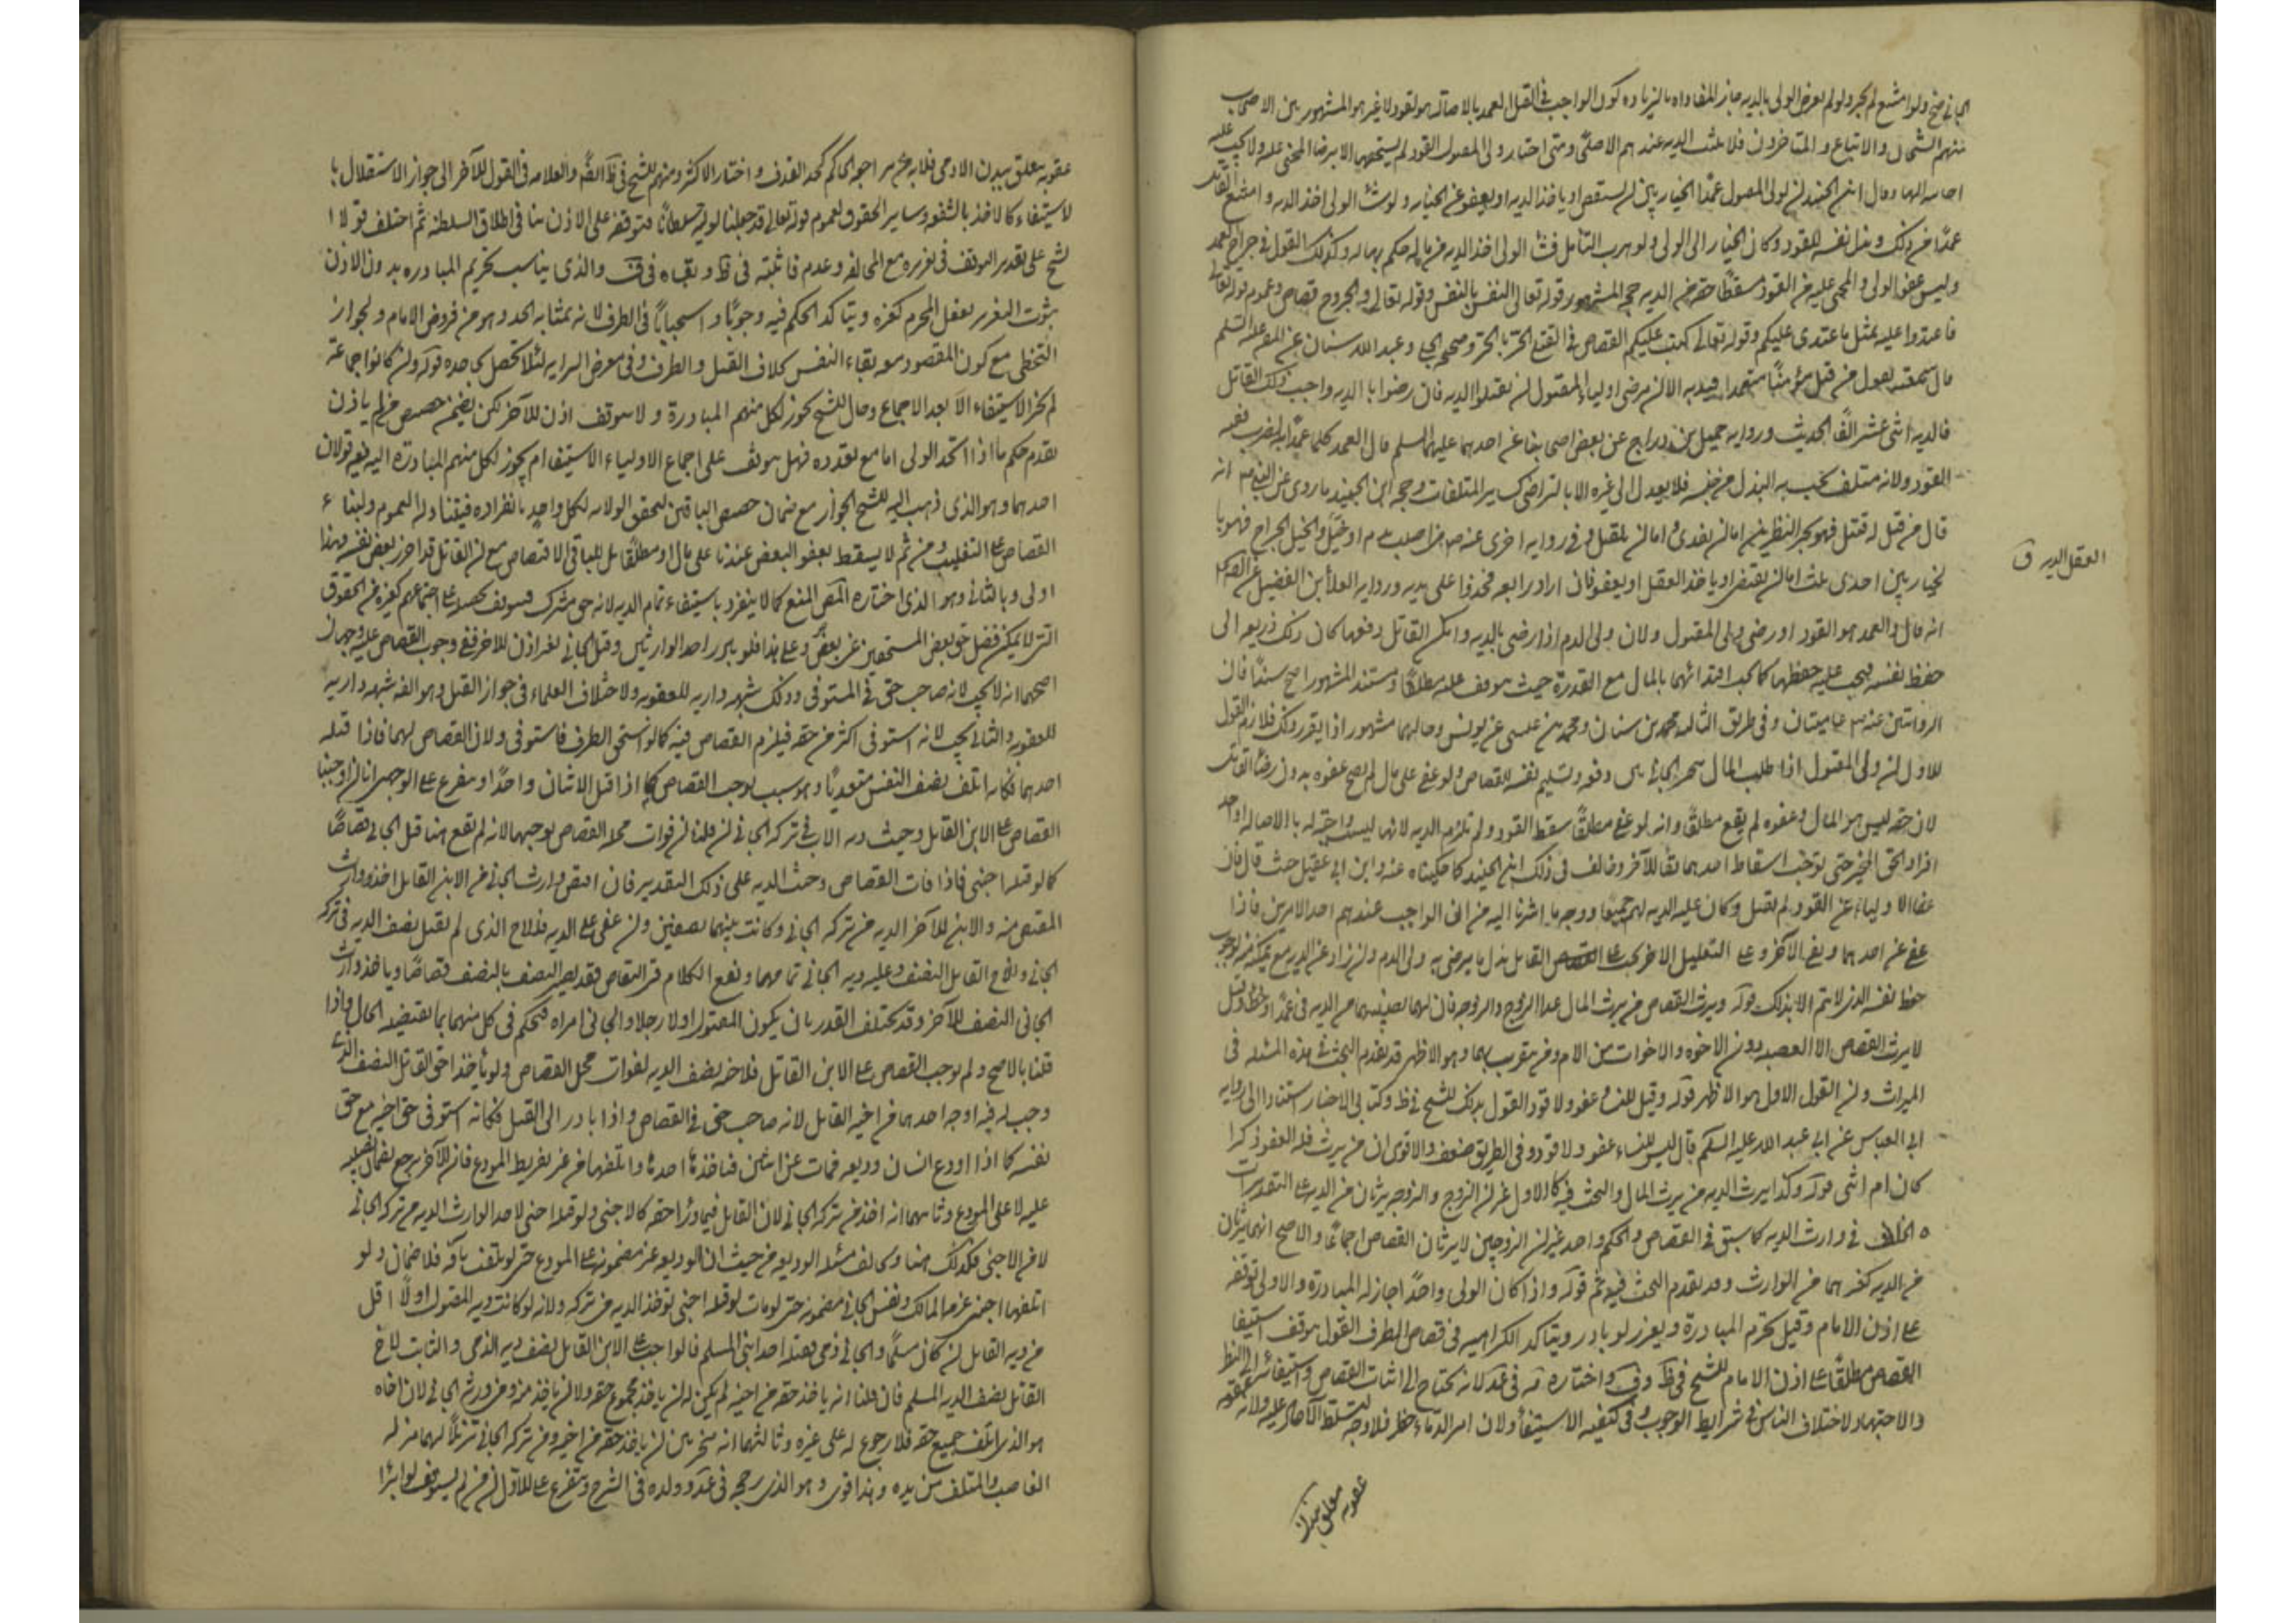 الجاني صح ولو امتنع لم يجز ولو لم يرض الولي بالدية جاز المفاداة بالزيادة كون الواجب في القتل العمد بالاصالة هو القود لا غير هو المشهور بين الاصحاب
منهم الشيخان والاتباع والمتاخرون فلا يثبت الدية عندهم الا صلحا ومتى اختار ولي المقتول القود لم يستحقها الا برضا المجني عليه ولا يجب عليه
اجابته اليها وقال ابن الجنيد ان لولي المقتول عمدا الخيار بين ان يستقص او ياخذ الدية او يعفو عن الجناية ولو شاء الولي اخذ الدية وامتنع القاتل
عمدا من ذلك وبذل نفسه للقود وكان الخيار الى الولي ولو هرب القاتل فشاء الولي اخذ الدية من ماله حكم بها له وكذلك القول في جراح العمد
وليس عفو الولي والمجني عليه من القود مسقطا حقه من الدية حجة المشهور قوله تعالى النفس بالنفس وقوله تعالى والجروح قصاص وعموم قوله تعالى
فاعتدوا عليه بمثل ما اعتدى عليكم وقوله تعالى كتب عليكم القصاص في القتلى الحر بالحر وصحيحة الحلبي وعبد الله بن سنان عن الصادق عليه السلم
قال سمعته يقول من قتل مؤمنا متعمدا قيد به الا ان يرضى اولياء المقتول ان يقبلوا الدية فان رضوا بالدية واحب ذلك القاتل
فالدية اثنى عشر الفا الحديث ورواية جميل بن دراج عن بعض اصحابنا عن احدهما عليهما السلم قال العمد كلما عمد به الضرب ففيه
القود ولانه متلف يجب به البدل من جنسه فلا يعدل الى غيره الا بالتراضي كساير المتلفات وحجة ابن الجنيد ما روي عن النبي ص انه
قال من قتل له قتيل فهو بخير النظرين اما ان يفدى واما ان يقتل وفي رواية اخرى عنه ص من اصيب بدم او خبل والخبل الجراح فهو با
لخيار بين احدى ثلث اما ان يقتص او ياخذ العقل او يعفو فان اراد رابعة فخذوا على يديه ورواية العلا بن الفضيل عن الصادق ع
العقل الدية ق
انه قال والعمد هو القود او رضى ولي المقتول ولان ولي الدم اذا رضي بالدية وامكن القاتل دفعها كان ذلك ذريعة الى
حفظ نفسه فيجب عليه حفظها كما يجب افتدائها بالمال مع القدرة حيث يتوقف عليه مطلقا ومستند المشهور اصح سندا فان
الروايتين عنه ص عاميتان وفي طريق الثالثة محمد بن سنان ومحمد بن عيسى عن يونس وحالهما مشهور اذا تقرر ذلك فلازم القول
للاول ان ولي المقتول اذا طلب المال تخير الجاني بين دفعه وتسليم نفسه للقصاص ولو عفى على مال لم يصح عفوه بدون رضا القاتل
لان حقه ليس هو المال وعفوه لم يقع مطلقا وانه لو عفى مطلقا سقط القود ولم تلزم الدية لانها ليست واجبة له بالاصالة او احد
افراد الحق المخير حتى يوجب اسقاط احدهما بقاء الآخر وخالف في ذلك ابن الجنيد كما حكيناه عنه وابن ابي عقيل حيث قال فان
عفا الاولياء عن القود لم يقتل وكان عليه الدية لهم جميعا ووجه ما اشرنا اليه من ان الواجب عندهم احد الامرين فاذا
عفى عن احدهما وبقي الآخر وعلى التعليل الاخر يجب على القاتل بذل ما يرضى به ولي الدم وان زاد عن الدية مع تمكنه منه لوجوب
حفظ نفسه الذي لا يتم الا بذلك قوله ويرث القصاص من يرث المال عدا الزوج والزوجة فان لهما نصيبهما من الدية في عمد او خطاء وقيل
لا يرث القصاص الا العصبة دون الاخوة والاخوات من الام ومن يتقرب بها وهو الاظهر قد تقدم البحث في هذه المسئلة في
الميراث وان القول الاول هو الاظهر قوله وقيل ليس للنساء عفو ولا قود القول بذلك للشيخ في ظ وكتابي الاخبار استنادا الى رواية
ابي العباس عن ابي عبد الله عليه السلم قال ليس للنساء عفو ولا قود وفي الطريق ضعف والاقوى ان من يرث فله العفو ذكرا
كان ام انثى قوله وكذا يرث الدية من يرث المال والبحث فيه كالاول غير ان الزوج والزوجة يرثان من الدية على التقديرات
الخلاف في وارث الدية كما سبق في القصاص والحكم واحد غير ان الزوجين لا يرثان القصاص اجماعا والاصح انهما يرثان
من الدية كغيرهما من الوارث وقد تقدم البحث فيه ثم قوله واذا كان الولي واحدا جاز له المبادرة والاولى توقفه
على اذن الامام وقيل يحرم المبادرة ويعزر لو بادر ويتاكد الكراهية في قصاص الطرف القول بتوقف استيفا
القصاص مطلقا على اذن الامام للشيخ في ظ وف واختاره مه في عد لانه يحتاج الى اثبات القصاص واستيفائه الى النظر
والاجتهاد لاختلاف الناس في شرايط الوجوب وفي كيفية الاستيفاء ولان امر الدماء خطر فلا وجه لتسلط الآحاد عليه ولانه عقوبة
عقوبة متعلق ببدن
عقوبة متعلق ببدن الادمي فلا بد من مراجعة الحاكم كحد القذف واختار الاكثر ومنهم الشيخ في ظ ايضا والعلامة في القول الآخر الى جواز الاستقلال با
لاستيفاء كالاخذ بالشفعة وساير الحقوق لعموم قوله تعالى فقد جعلنا لوليه سلطانا فتوقفه على الاذن ينافي اطلاق السلطنة ثم اختلف قولا ا
لشيخ على تقدير التوقف في تعزيره مع المخالفة وعدمه فاثبته في ظ ونفاه في ف والذي يناسب تحريم المبادرة بدون الاذن
ثبوت التعزير لفعل المحرم كغيره ويتاكد الحكم فيه وجوبا واستحبابا في الطرف لانه بمثابة الحد وهو من فروض الامام ولجواز
التخطي مع كون المقصود معه بقاء النفس بخلاف القتل والطرف وفي معرض السراية لئلا تحصل مجاحدة قوله وان كانوا جماعة
لم يجز الاستيفاء الا بعد الاجماع وقال الشيخ يجوز لكل منهم المبادرة ولا يتوقف اذن الآخر لكن يضمن حصص من لم ياذن
تقدم حكم ما اذا اتحد الولي اما مع تعدده فهل يتوقف على اجماع الاولياء الاستيفاء ام يجوز لكل منهم المبادرة اليه فيه قولان
احدهما وهو الذي ذهب اليه الشيخ الجواز مع ضمان حصص الباقين لتحقق الولاية لكل واحد بانفراده فيتناوله العموم ولبناء
القصاص على التغليب ومن ثم لا يسقط بعفو البعض عندنا على مال او مطلقا بل للباقي الاقتصاص مع ان القاتل قد احرز بعض نفسه فهذا
اولى وبالثاني وهو الذي اختاره المص المنع كما لا ينفرد باستيفاء تمام الدية لانه حق مشترك فيتوقف تحصيله على اجتماعهم كغيره من الحقوق
التي لا يمكن فصل حق بعض المستحقين عن بعض وعلى هذا فلو بادر احد الوارثين وقتل الجاني لغير اذن للاخر ففي وجوب القصاص عليه وجهان
اصحهما انه لا يجب لانه صاحب حق في المستوفى وذلك شبهة دارية للعقوبة ولاختلاف العلماء في جواز القتل وهو ايضا شبهة دارية
للعقوبة والثاني يجب لانه استوفى اكثر من حقه فيلزم القصاص فيه كما لو استحق الطرف فاستوفى ولان القصاص لهما فاذا قتله
احدهما فكانه اتلف نصف النفس متعديا وهو سبب يوجب القصاص كما اذا قتل الاثنان واحدا ويتفرع على الوجهين انا ان اوجبنا
القصاص على الابن القاتل وجبت دية الاب في تركة الجاني ان قلنا ان فوات محل القصاص يوجبها لانه لم يقع هنا قتل الجاني قصاصا
كما لو قتله اجنبي فاذا فات القصاص وجبت الدية على ذلك التقدير فان اقتص وارث الجاني من الابن القاتل اخذ وارث
المقتص منه والابن الآخر الدية من تركة الجاني وكانت بينهما نصفين وان عفى على الدية فللاخ الذي لم يقتل نصف الدية في تركة
الجاني وللاخ القاتل النصف وعليه دية الجاني تمامها ويقع الكلام في التقاص فقد يصير النصف بالنصف قصاصا وياخذ وارث
الجاني النصف الآخر وقد يختلف القدر بان يكون المقتول اولا رجلا والجاني امراة فيحكم في كل منهما بما يقتضيه الحال واذا
قلنا بالاصح ولم نوجب القصاص على الابن القاتل فلاخيه نصف الدية لفوات محل القصاص ولو ياخذ احق القاتل النصف الذي
وجب له فيه اوجه احدهما من اخيه القاتل لانه صاحب حق في القصاص واذا بادر الى القتل فكانه استوفى حق اخيه مع حق
نفسه كما اذا اودع انسان وديعة فمات عن اثنين فاخذها احدهما واتلفها من غير تفريط المودع فان الآخر يرجع بضمان نصيبه
عليه لا على المودع وثانيهما انه اخذ من تركة الجاني لان القاتل فيما وراء حقه كالاجنبي ولو قتله اجنبي لاخذ الوارث الدية من تركة الجاني
لا من الاجنبي فكذلك هنا ويخالف مسئلة الوديعة من حيث ان الوديعة غير مضمونة على المودع حتى لو تلفت بآفة فلا ضمان ولو
اتلفها اجنبي غرمه المالك ونفس الجاني مضمونة حتى لو مات او قتله اجنبي توخذ الدية من تركته ولانه لو كانت دية المقتول اولا اقل
من دية القاتل بان كان مسلما والجاني ذمي فقتله احد ابني المسلم فالواجب على الابن القاتل نصف دية الذمي والثابت للاخ
القاتل نصف الدية المسلم فان قلنا انه ياخذ حقه من اخيه لم يكن له ان ياخذ مجموع حقه ولا ان ياخذ منه ومن ورثة الجاني لان اخاه
هو الذي اتلف جميع حقه فلا رجوع له على غيره وثالثهما انه يتخير بين ان ياخذ حقه من اخيه ومن تركة الجاني تنزيلا لهما منزلة
الغاصب والمتلف من يده وهذا اقوى وهو الذي رجحه في عد وولده في الشرح ويتفرع على الاول ان من لم يستوف لو ابرا